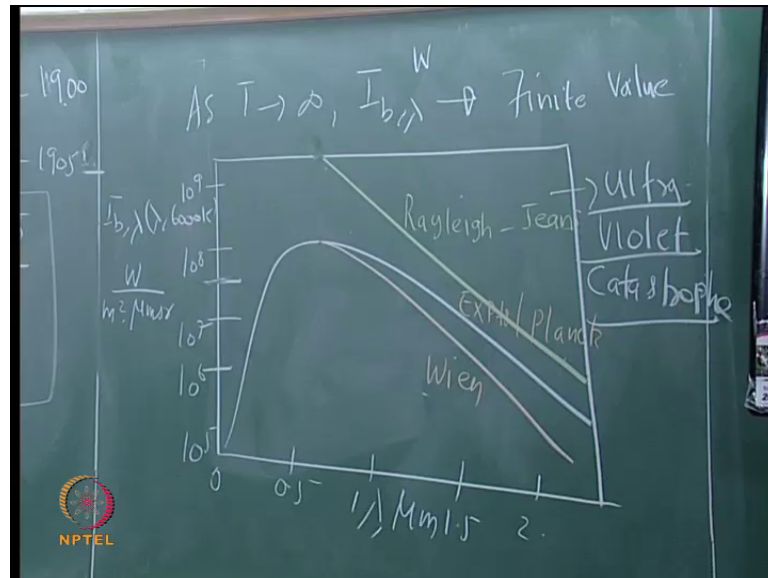 1900
1905
As T → ∞, I_{b,λ}^W → Finite Value
I_{b,λ}(λ, 6000K)
W
m² μm sr
10⁹
10⁸
10⁷
10⁶
10⁵
Rayleigh - Jeans
Expts/Planck
Wien
→ Ultra
Violet
Catastrophe
0
0.5
1
λ, μm
1.5
2.
NPTEL